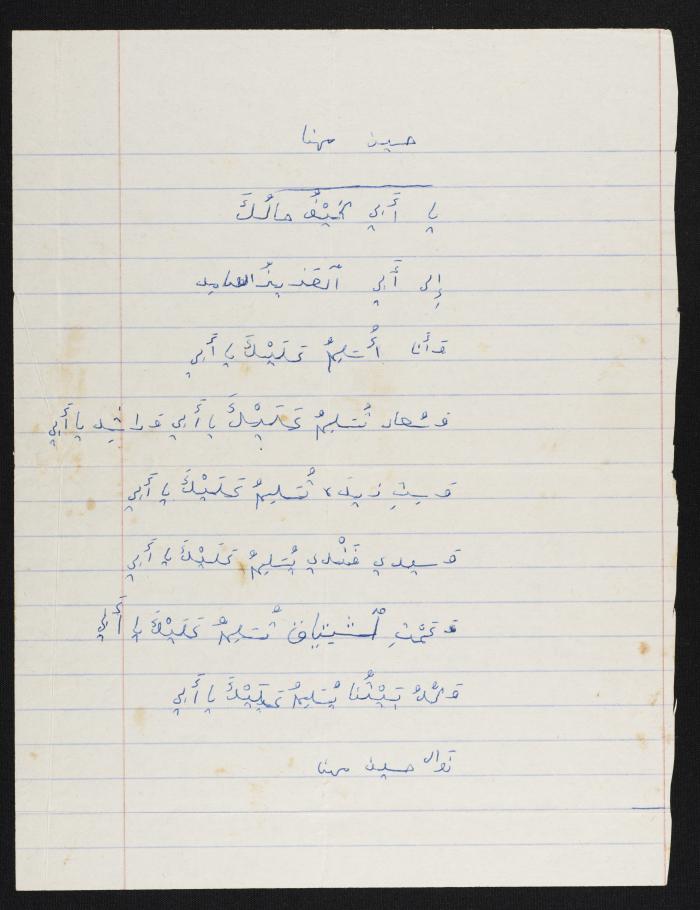 حسين مهنا
يا أَبي كَيْفُ حالُكَ
إِلى أَبي اَلعَزيزُ
وَأَنا أُسَلِمُ عَلَيْكَ يا أَبي
وَسُعاد تُسَلِمُ عَلَيْكَ يا أَبي وَراشِد يا أَبي
وَسِتِ تُسَلِمُ عَلَيْكَ يا أَبي
وَسيدي فَنْدي يُسَلِمُ عَلَيْكَ يا أَبي
وَعَمْتِ تُسَلِمُ عَلَيْكَ يا أَبي
وَكُلُ بَيْتُنا يُسَلِمُ عَلَيْكَ يا أَبي
نَوال حسين مهنا